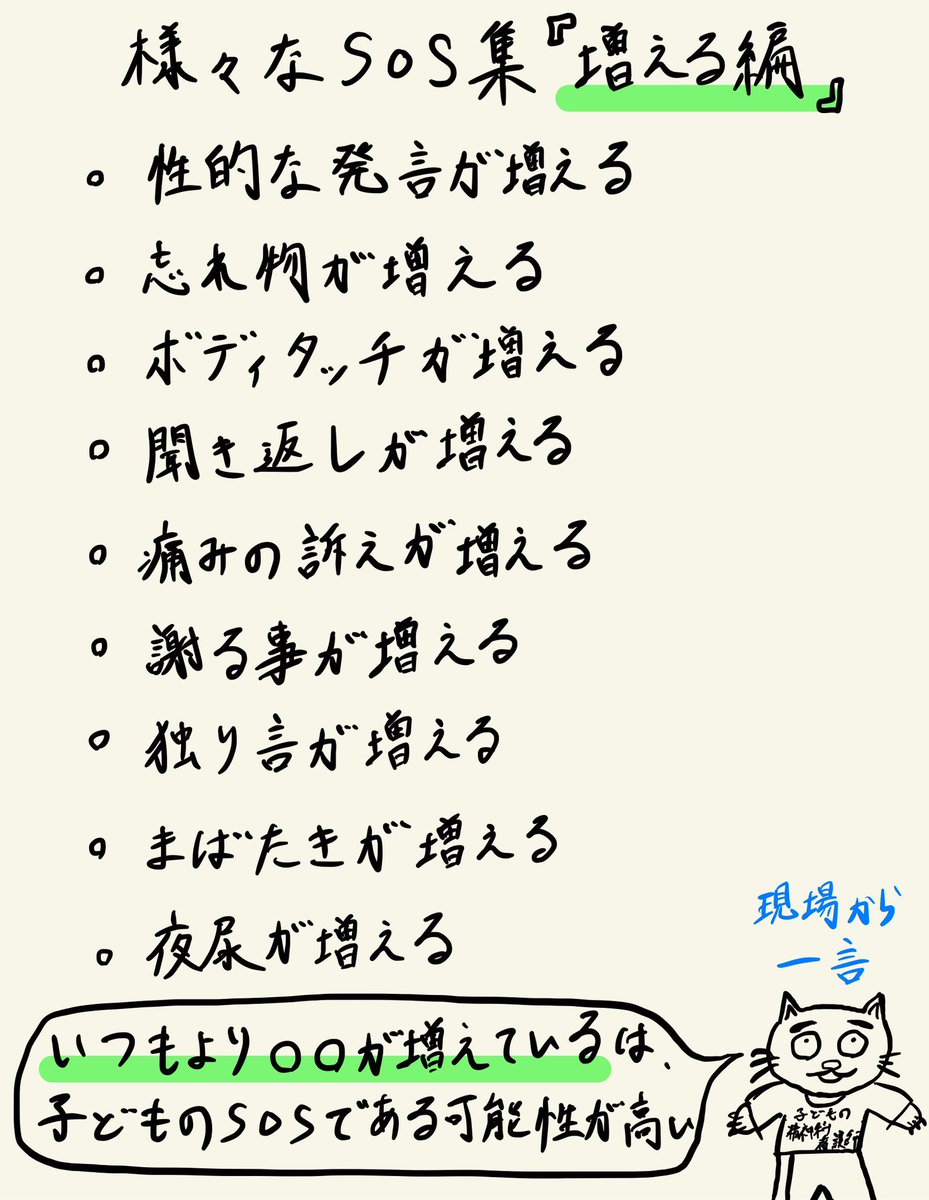 様々なSOS集『増える編』
。性的な発言が増える
。忘れ物が増える
。ボディタッチが増える
。聞き返しが増える
。痛みの訴えが増える
。謝る事が増える
。独り言が増える
。まばたきが増える
。夜尿が増える
現場から
一言
いつもより〇〇が増えているは、
子どものSOSである可能性が高い
子どもの
精神科
看護師